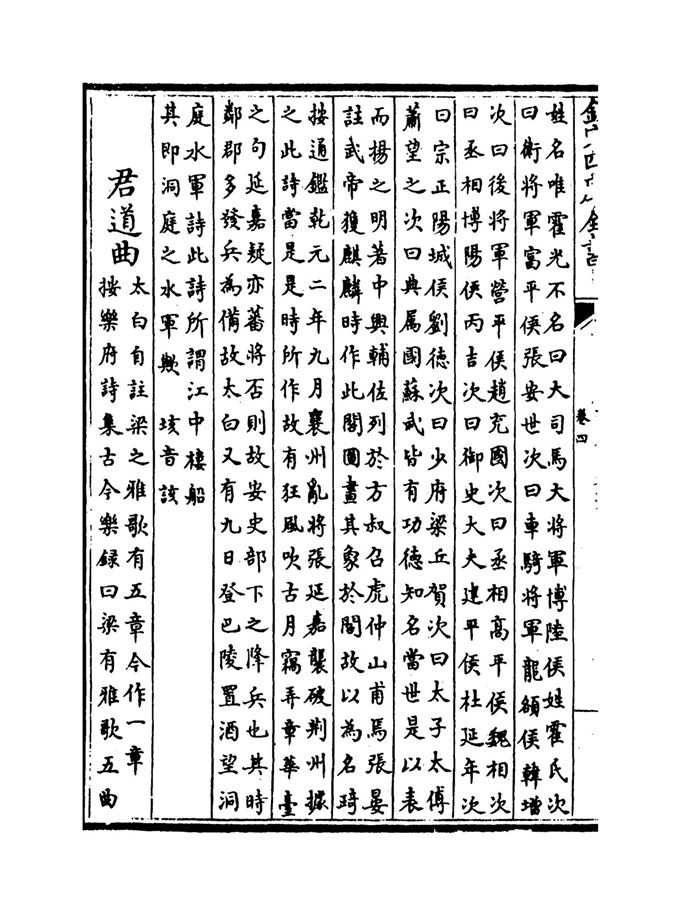 卷四
姓名唯霍光不名曰大司馬大將軍博陸侯姓霍氏次
曰衛將軍富平侯張安世次曰車騎將軍龍頟侯韓增
次曰後將軍營平侯趙充國次曰丞相高平侯魏相次
曰丞相博陽侯丙吉次曰御史大夫建平侯杜延年次
曰宗正陽城侯劉徳次曰少府梁丘賀次曰太子太傅
蕭望之次曰典屬國蘇武皆有功徳知名當世是以表
而揚之明著中興輔佐列於方叔召虎仲山甫焉張晏
註武帝獲麒麟時作此閣圖畫其象於閣故以為名琦
按通鑑乾元二年九月襄州亂將張延嘉襲破荆州據
之此詩當是是時所作故有狂風吹古月竊弄章華臺
之句延嘉疑亦蕃將否則故安史部下之降兵也其時
鄰郡多發兵為備故太白又有九日登巴陵置酒望洞
庭水軍詩此詩所謂江中樓船
其即洞庭之水軍歟　垓音該
君道曲
太白自註梁之雅歌有五章今作一章
按樂府詩集古今樂録曰梁有雅歌五曲